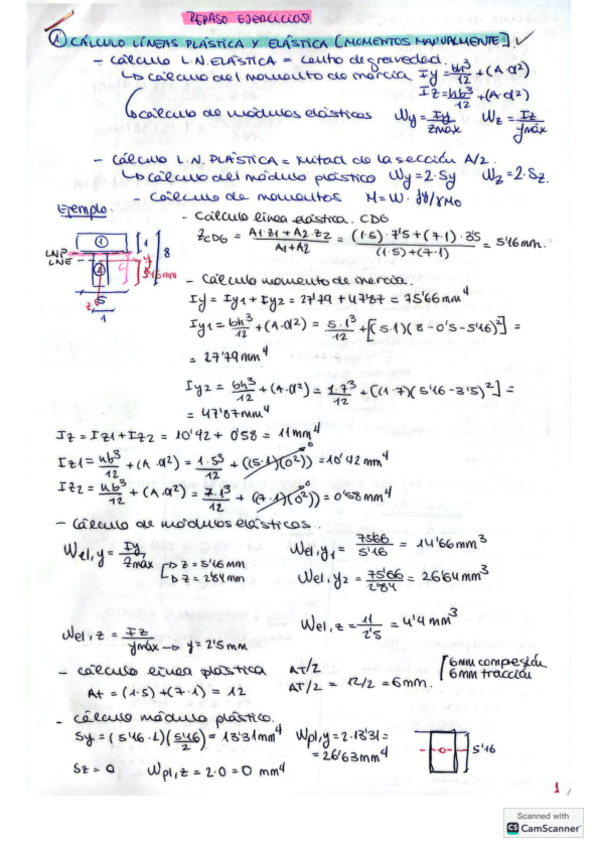 REPASO EJERCICIOS.
① CÁLCULO LÍNEAS PLÁSTICA Y ELÁSTICA [MOMENTOS MANUALMENTE]. ✓
- Cálculo L.N. ELÁSTICA = Centro de gravedad.
↳ Cálculo del momento de inercia Iy = bh³/12 + (A·d²)
Iz = hb³/12 + (A·d²)
Cálculo de módulos elásticos Wy = Iy/Zmáx Wz = Iz/ymáx
- Cálculo L.N. PLÁSTICA = Mitad de la sección A/2.
↳ Cálculo del módulo plástico Wy = 2·Sy Wz = 2·Sz.
- Cálculo de momentos M = W · fy/γM0
Ejemplo:
- Cálculo línea elástica. CDG
ZCDG = A1·Z1 + A2·Z2 / A1 + A2 = (1·5)·7'5 + (7·1)·3'5 / (1·5) + (7·1) = 5'16 mm.
1
1
8
LNP
LNE
y
5'16mm
z
5
1
- Cálculo momento de inercia.
Iy = Iy1 + Iy2 = 27'79 + 47'87 = 75'66 mm⁴
Iy1 = bh³/12 + (A·d²) = 5·1³/12 + [(5·1)(8 - 0'5 - 5'16)²] =
= 27'79 mm⁴
Iy2 = bh³/12 + (A·d²) = 1·7³/12 + [(1·7)(5'16 - 3'5)²] =
= 47'87 mm⁴
Iz = Iz1 + Iz2 = 10'42 + 0'58 = 11 mm⁴
Iz1 = hb³/12 + (A·d²) = 1·5³/12 + ((5·1)(0²)) = 10'42 mm⁴
Iz2 = hb³/12 + (A·d²) = 7·1³/12 + (7·1)(0²)) = 0'58 mm⁴
- Cálculo de módulos elásticos.
Wel,y = Iy/Zmáx Wel,y1 = 75'66/5'16 = 14'66 mm³
z = 5'16 mm
z = 2'84 mm Wel,y2 = 75'66/2'84 = 26'64 mm³
Wel,z = Iz/ymáx → y = 2'5 mm Wel,z = 11/2'5 = 4'4 mm³
- Cálculo línea plástica AT/2 [6mm compresión
At = (1·5) + (7·1) = 12 AT/2 = 12/2 = 6mm. 6mm tracción
- Cálculo módulo plástico.
Sy = (5'16·1)(5'16/2) = 13'31mm⁴ Wpl,y = 2·13'31 =
= 26'63 mm⁴ 5'16
Sz = 0 Wpl,z = 2·0 = 0 mm⁴
1
Scanned with
CS CamScanner